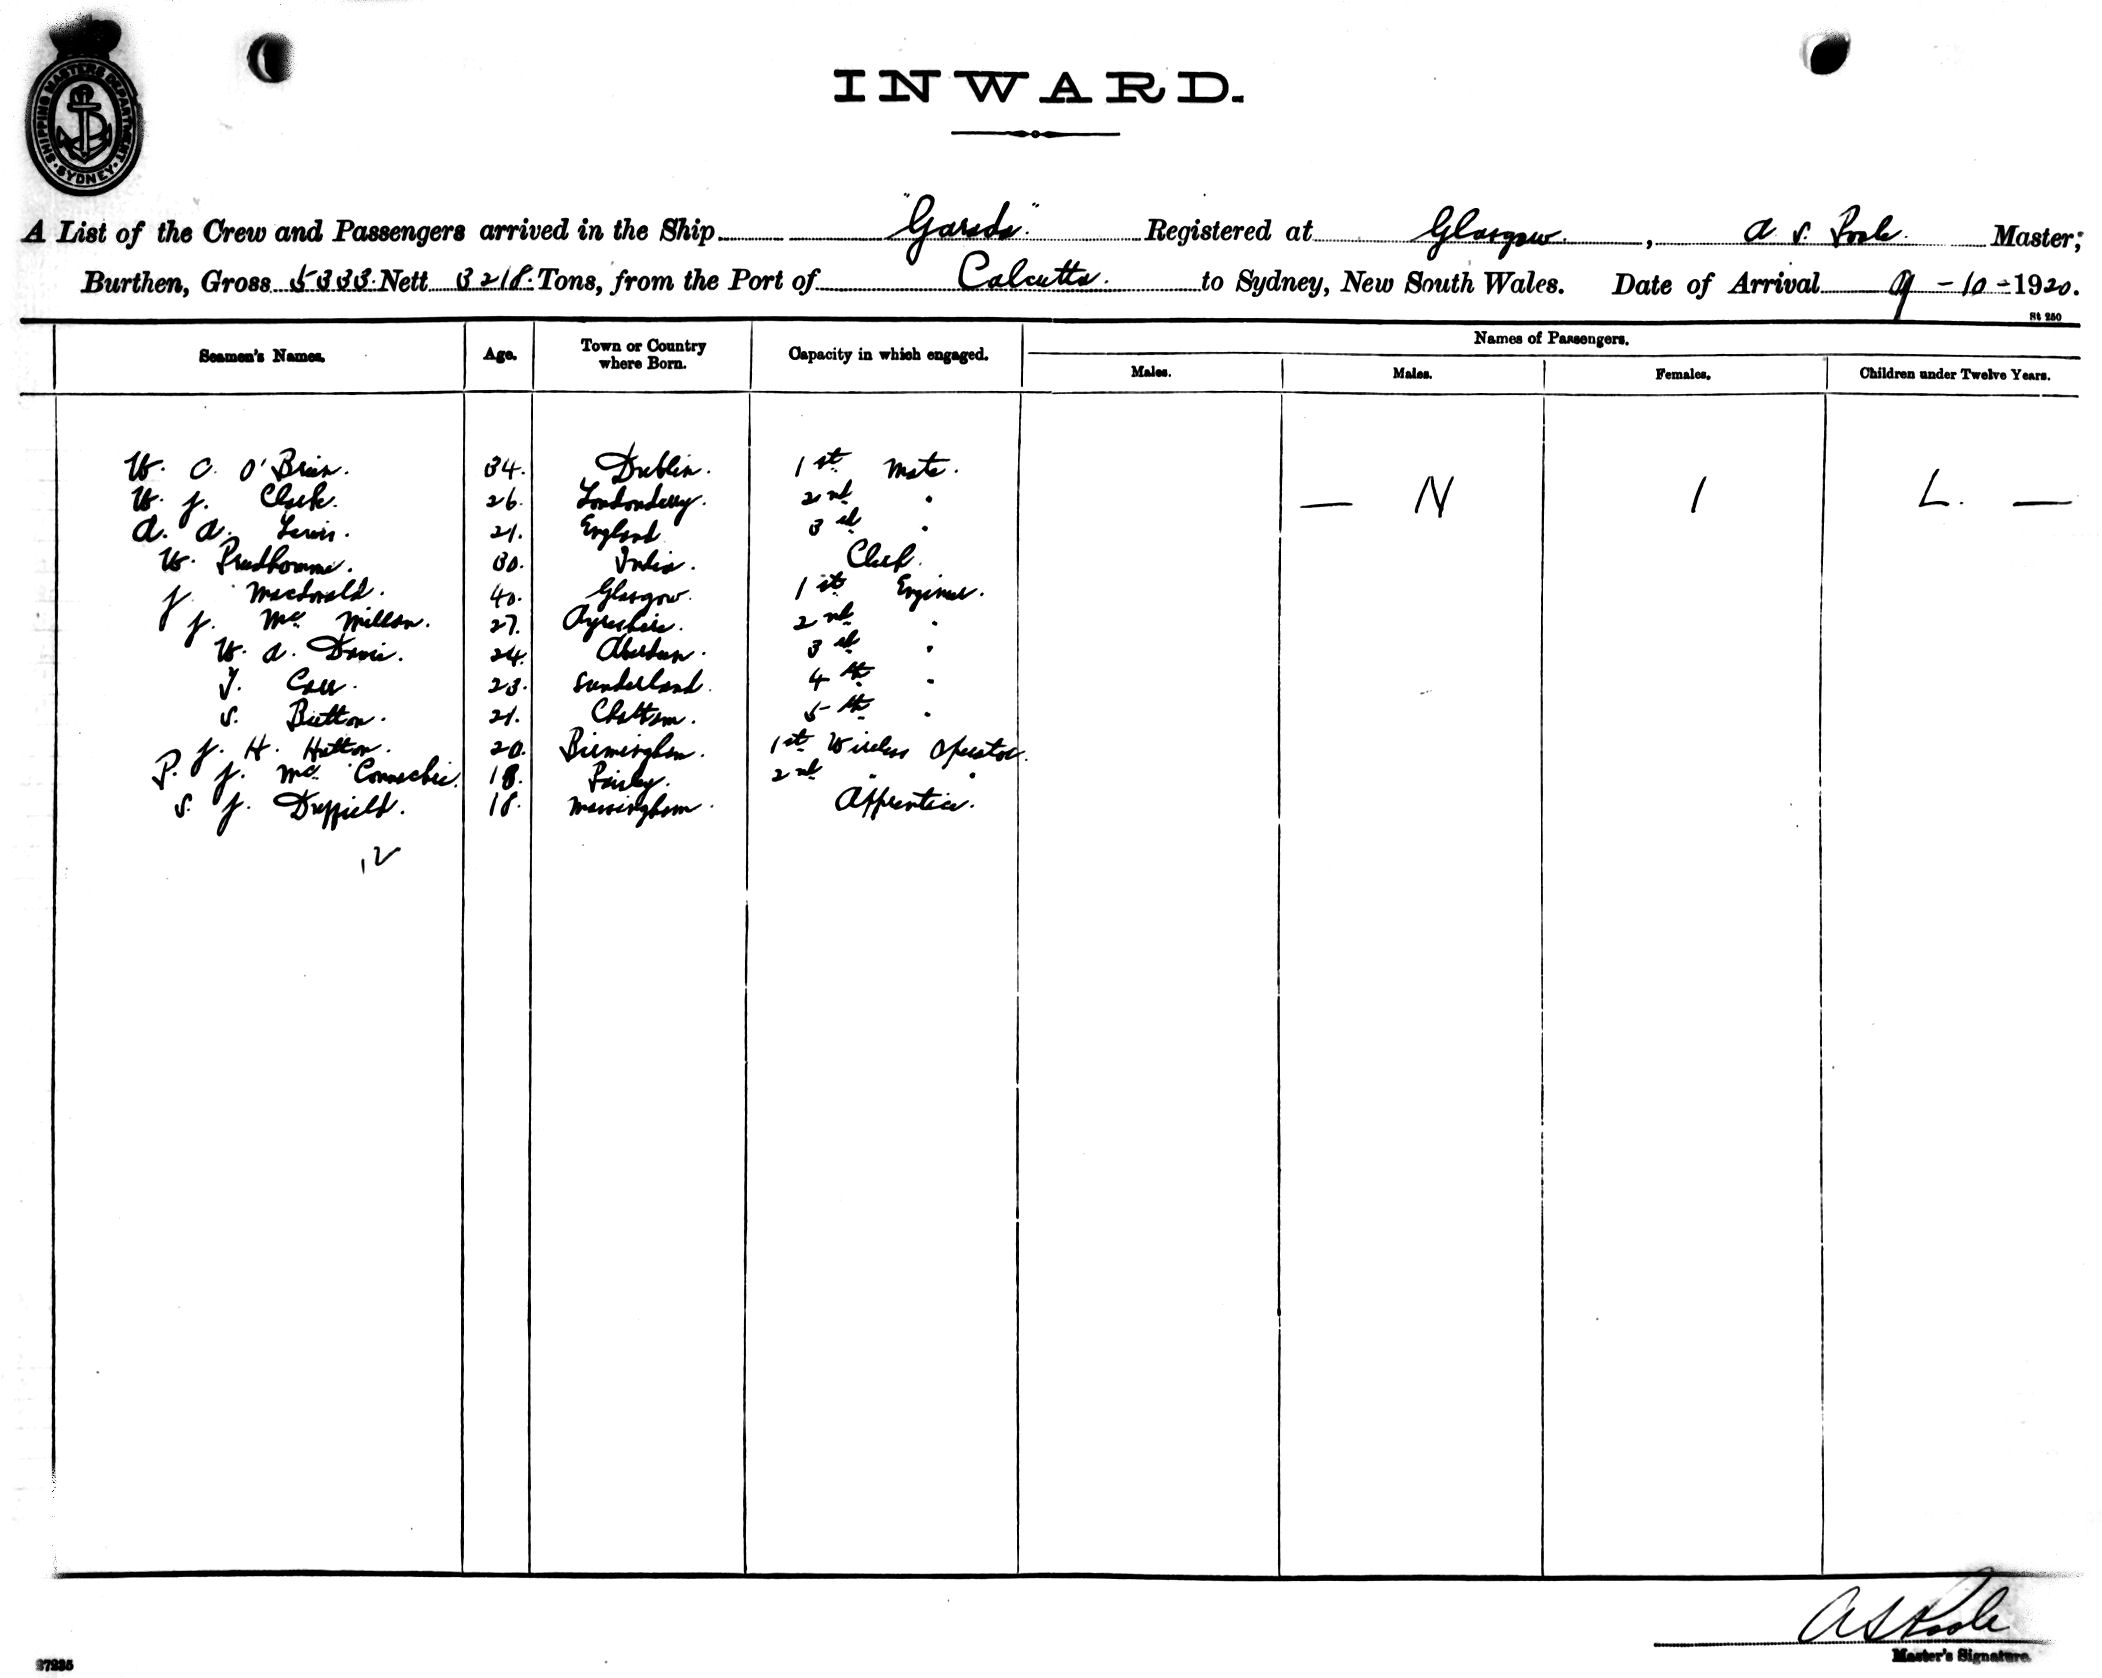 SHIPPING MASTERS DEPARTMENT SYDNEY
INWARD.
A List of the Crew and Passengers arrived in the Ship "Garada" Registered at Glasgow, A S. Poole. Master;
Burthen, Gross 5333. Nett 3218. Tons, from the Port of Calcutta. to Sydney, New South Wales. Date of Arrival 9-10-1920.
St 250
Seamen's Names. Age. Town or Country where Born. Capacity in which engaged. Names of Passengers.
Males. Males. Females. Children under Twelve Years.
W. C. O'Brien. 34. Dublin. 1st Mate.
W. J. Clark. 26. Londonderry. 2nd "
— N I L. —
A. A. Lewis. 21. England 3rd "
W. Prudhomme. 30. India. Clerk.
J. Macdonald. 40. Glasgow. 1st Engineer.
J. Mc Millan. 27. Ayrshire. 2nd "
W. A. Davie. 24. Aberdeen. 3rd "
T. Carr. 23. Sunderland. 4th "
S. Button. 21. Chatham. 5th "
J. H. Hutton. 20. Birmingham. 1st Wireless Operator.
P. J. Mc Connachie. 18. Paisley. 2nd " "
S. J. Duffield. 18. Massingham. Apprentice.
12
A S Poole
Master's Signature.
27235